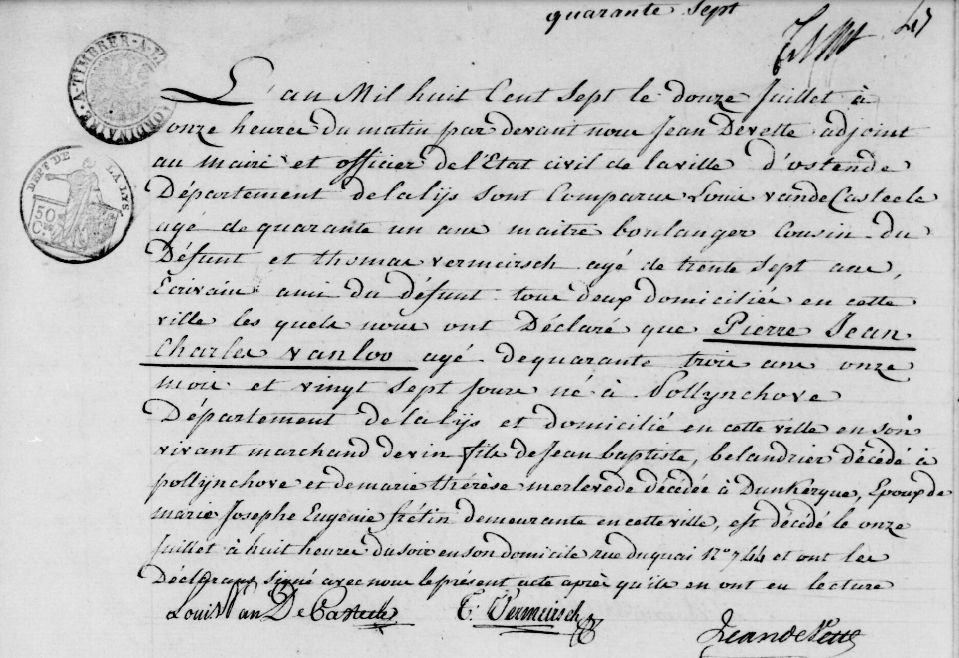 quarante Sept
47
A-TIMBRER-A-
ORDINAIRE
L'an Mil huit Cent Sept le douze Juillet à
onze heures du matin par devant nous Jean Devette adjoint
au maire et officier de l'Etat civil de la ville d'ostende
Département de la lijs sont Comparus Louis vandeCasteele
agé de quarante un ans maitre boulanger Cousin du
DEPT DE LA LYS
50 Ces
Défunt et thomas vermeirsch agé de trente Sept ans,
Ecrivain ami du défunt tous deux domiciliés en cette
ville les quels nous ont Déclaré que Pierre Jean
Charles vanloo agé de quarante trois ans onze
mois et vingt Sept Jours né à Pollynchove
Département de la lijs et domicilié en cette ville en son
vivant marchand de vin fils de Jean baptiste, belandrier décédé à
pollijnchove et de marie thérèse merlevede décédée à Dunkerque, Epoux de
marie Josephe Eugénie frétin demeurante en cette ville, est décédé le onze
Juillet à huit heures du soir en son domicile rue du quai N° 744 et ont les
Déclarans signé avec nous le présent acte après qu'ils en ont eu lecture
Louis Van De Casteele T. Vermeirsch
Jean de Vette